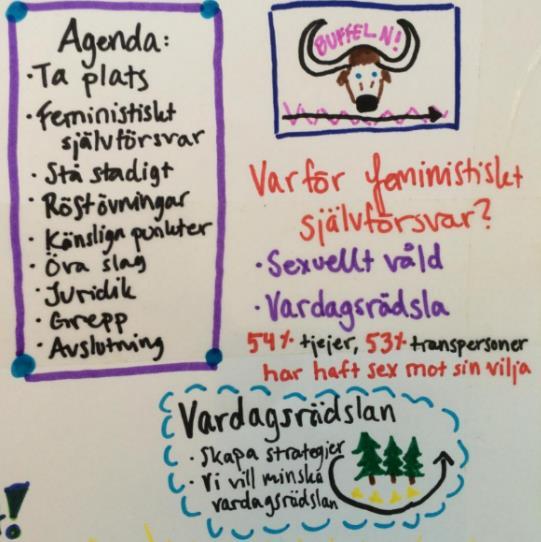 Agenda:
· Ta plats
· Feministiskt
självförsvar
· Stå stadigt
· Röstövningar
· Känsliga punkter
· Öva slag
· Juridik
· Grepp
· Avslutning
BUFFELN!
Varför feministiskt
självförsvar?
· Sexuellt våld
· Vardagsrädsla
54% tjejer, 53% transpersoner
har haft sex mot sin vilja
Vardagsrädslan
· Skapa strategier
· Vi vill minska
vardagsrädslan